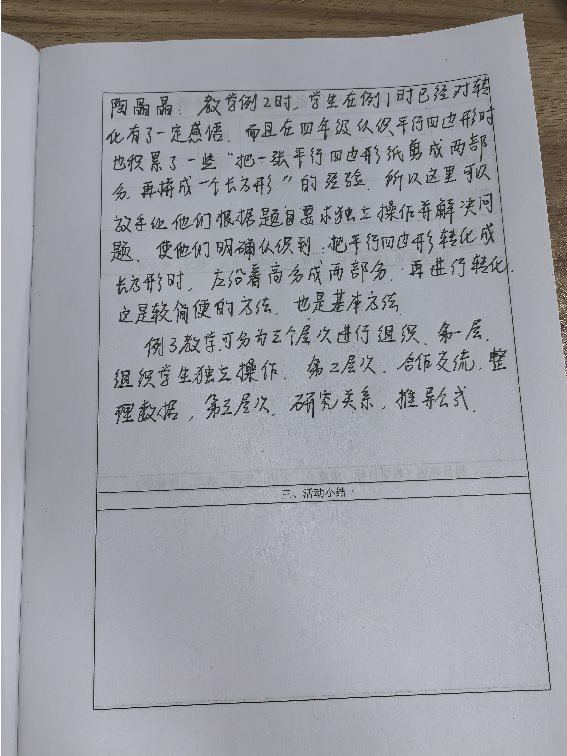 陶晶晶：教学例2时，学生在例1时已经对转
化有了一定感悟，而且在四年级认识平行四边形时
也积累了一些“把一张平行四边形纸剪成两部
分，再拼成一个长方形”的经验，所以这里可以
放手让他们根据题目要求独立操作并解决问
题，使他们明确认识到，把平行四边形转化成
长方形时，应沿着高分成两部分，再进行转化，
这是较简便的方法，也是基本方法。
例3教学可分为三个层次进行组织，第一层，
组织学生独立操作，第二层次，合作交流，整
理数据，第三层次，研究关系，推导公式。
三、活动小结